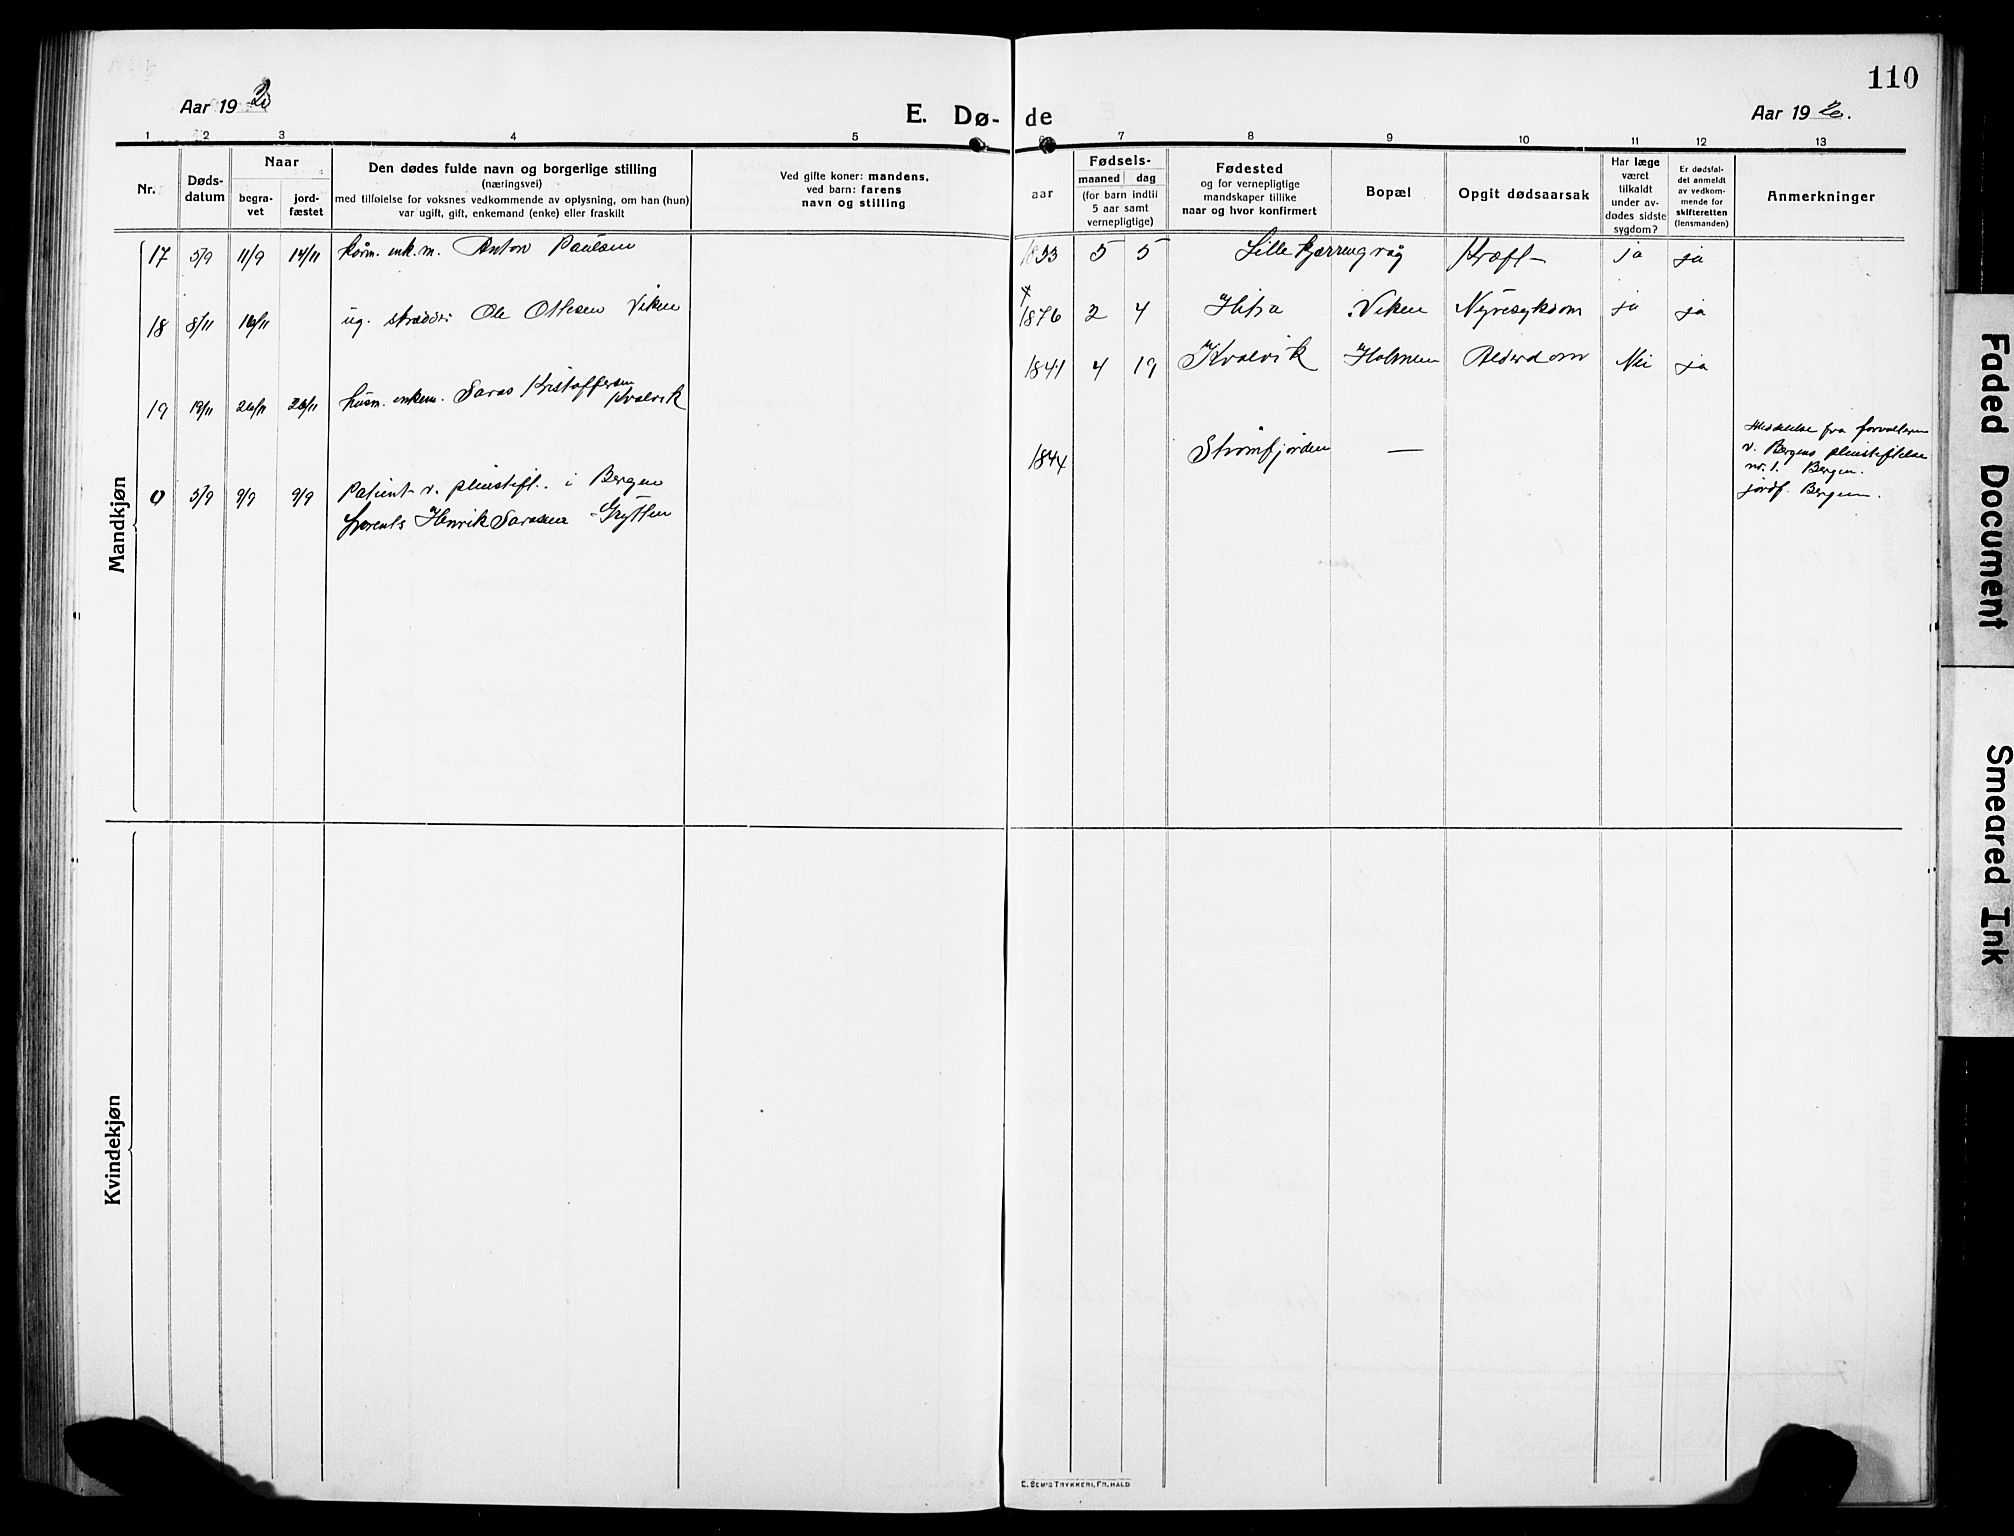 110
Aar 19
E. Dø- de
Aar 19
1 2 3 4 5 6 7 8 9 10 11 12 13
Nr.
Døds-
datum
Naar
begra-
vet
jord-
fæstet
Den dødes fulde navn og borgerlige stilling
(næringsvei)
med tilføielse for voksnes vedkommende av oplysning, om han (hun)
var ugift, gift, enkemand (enke) eller fraskilt
Ved gifte koner: mandens,
ved barn: farens
navn og stilling
aar
Fødsels-
maaned dag
(for barn indtil
5 aar samt
vernepligtige)
Fødested
og for vernepligtige
mandskaper tillike
naar og hvor konfirmert
Bopæl
Opgit dødsaarsak
Har læge
været
tilkaldt
under av-
dødes sidste
sygdom?
Er dødsfal-
det anmeldt
av vedkom-
mende for
skifteretten
(lensmanden)
Anmerkninger
Mandkjøn
17 5/9 11/9 14/11 enk.m. Anton Paulsen 1853 5 5 Lille Kjærringvåg Kræft ja ja
18 8/11 16/11 ug. Ole Ottesen Viken 1876 2 4 Hitra Viken Nyresykdom ja ja
19 19/11 26/11 26/11 husm. enkem. Saras Kristoffersen
Kvalvik 1841 4 19 Kvalvik Holmen Alderdom Nei ja
0 3/9 9/9 9/9 Patient v. pleiestift. i Bergen
Lorents Henrik Sarasen Grytten 1844 Strömfjorden —
Meddelelse fra forvalteren
v. Bergens pleiestiftelse
nr. 1. Bergen.
jordf. Bergen.
Kvindekjøn
E. SEM'S TRYKKERI, FR.HALD
Faded Document
Smeared Ink